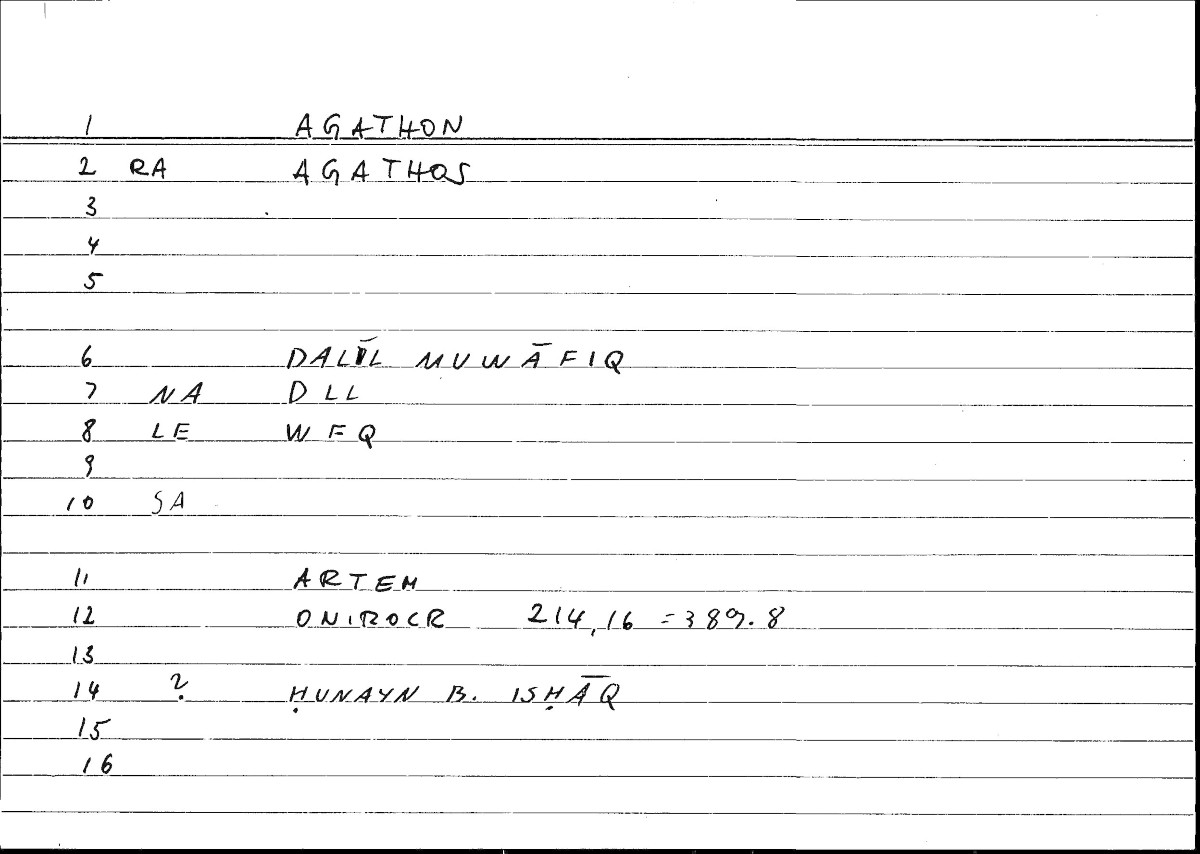 1 AGATHON
2 RA AGATHOS
3
4
5
6 DALĪL MUWĀFIQ
7 NA DLL
8 LE WFQ
9
10 SA
11 ARTEM
12 ONIROCR 214,16 = 389.8
13
14 ? ḤUNAYN B. ISḤĀQ
15
16